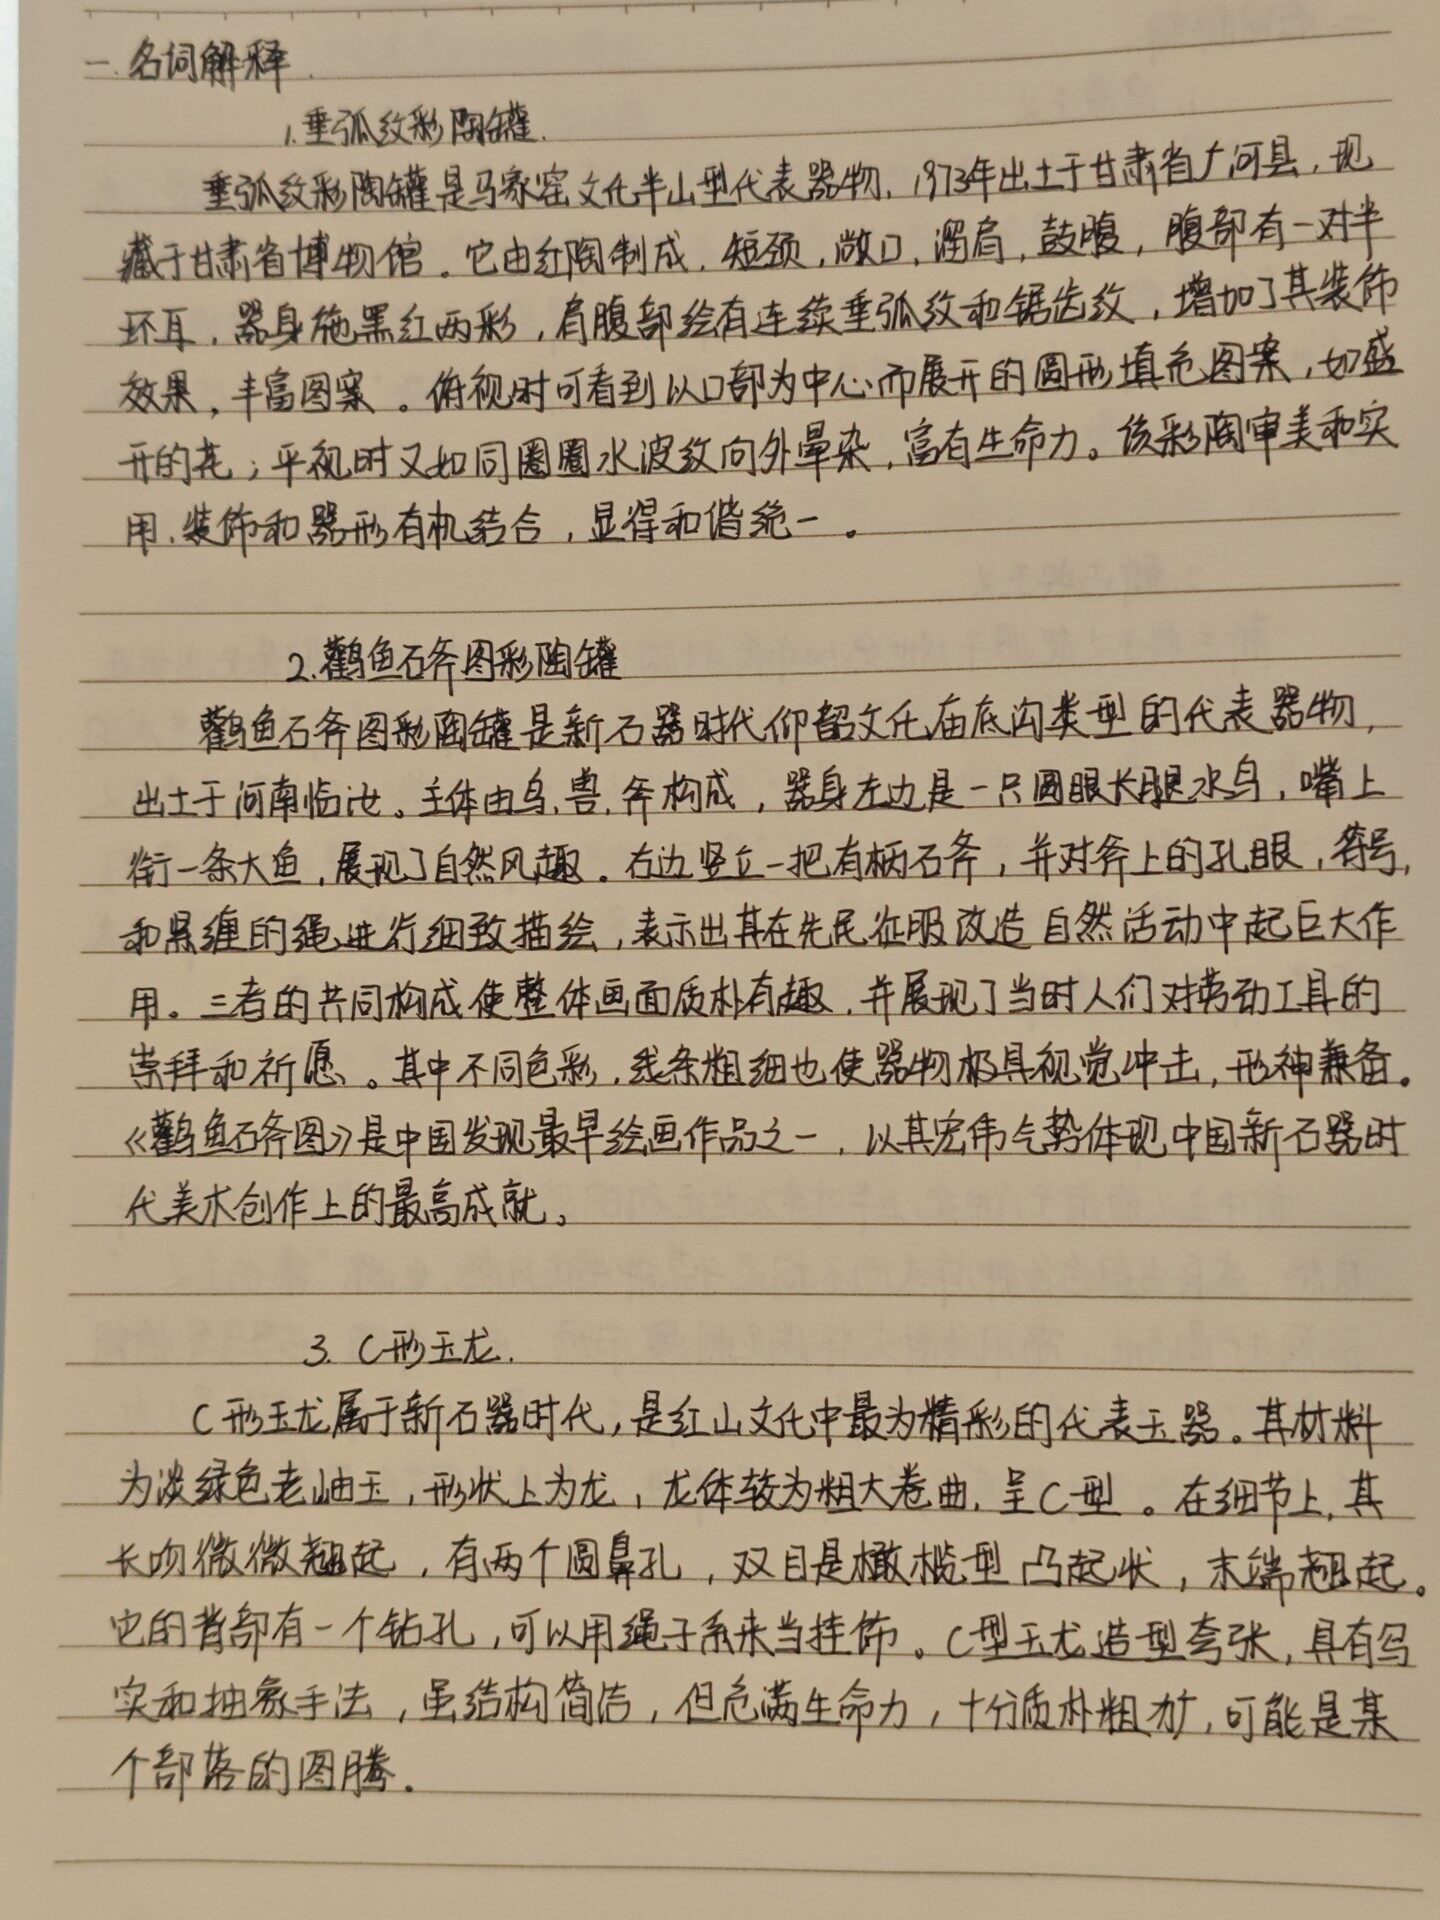 一.名词解释.
1.垂弧纹彩陶罐.
垂弧纹彩陶罐是马家窑文化半山型代表器物,1973年出土于甘肃省广河县,现
藏于甘肃省博物馆。它由红陶制成,短颈,敞口,溜肩,鼓腹,腹部有一对半
环耳,器身施黑红两彩,肩腹部绘有连续垂弧纹和锯齿纹,增加了其装饰
效果,丰富图案。俯视时可看到以口部为中心而展开的圆形填充图案,如盛
开的花;平视时又如同圈圈水波纹向外晕染,富有生命力。该彩陶审美和实
用、装饰和器形有机结合,显得和谐统一。
2.鹳鱼石斧图彩陶罐
鹳鱼石斧图彩陶罐是新石器时代仰韶文化庙底沟类型的代表器物,
出土于河南临汝。主体由鸟、兽、斧构成,器身左边是一只圆眼长腿水鸟,嘴上
衔一条大鱼,展现了自然风趣。右边竖立一把有柄石斧,并对斧上的孔眼,符号,
和黑缠的绳进行细致描绘,表示出其在先民征服改造自然活动中起巨大作
用。三者的共同构成使整体画面质朴有趣,并展现了当时人们对劳动工具的
崇拜和祈愿。其中不同色彩,线条粗细也使器物极具视觉冲击,形神兼备。
《鹳鱼石斧图》是中国发现最早绘画作品之一,以其宏伟气势体现中国新石器时
代美术创作上的最高成就。
3. C形玉龙.
C形玉龙属于新石器时代,是红山文化中最为精彩的代表玉器。其材料
为淡绿色老岫玉,形状上为龙,龙体较为粗大卷曲,呈C型。在细节上,其
长吻微微翘起,有两个圆鼻孔,双目是橄榄型凸起状,末端翘起。
它的背部有一个钻孔,可以用绳子系来当挂饰。C型玉龙造型夸张,具有写
实和抽象手法,虽结构简洁,但充满生命力,十分质朴粗犷,可能是某
个部落的图腾.